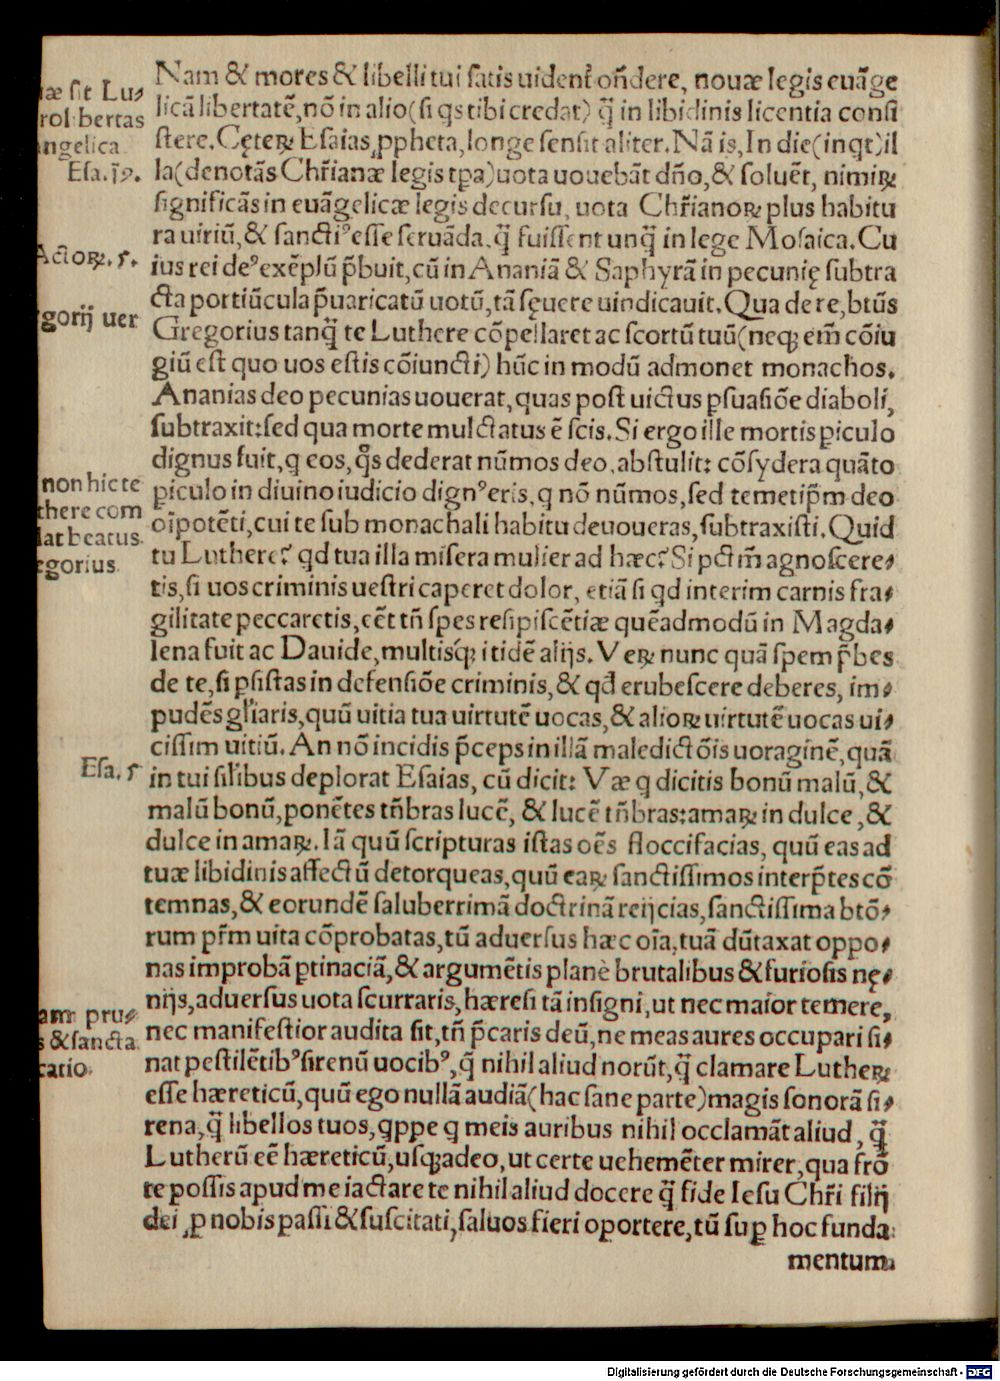 Nam & mores & libelli tui ſatis uident̃ oñdere, nouæ legis euãge
licã libertatẽ, nõ in alio (ſi q̃s tibi credat) q̃ in libidinis licentia conſi
ſtere. Cęteꝝ Eſaias ꝓpheta, longe ſenſit aliter. Nã is, In die (inqt) il
la (denotãs Chr̃ianæ legis tp̃a) uota uouebãt dño, & ſoluẽt, nimiꝝ
ſignificãs in euãgelicæ legis decurſu, uota Chr̃ianoꝝ plus habitu
ra uiriũ, & ſanctiꝰ eſſe ſeruãda, q̃ fuiſſent unq̃ in lege Moſaica. Cu
ius rei deꝰ exẽplũ p̃buit, cũ in Ananiã & Saphyrã in pecunię ſubtra
cta portiũcula p̃uaricatũ uotũ, tã ſęuere uindicauit. Qua de re, btũs
Gregorius tanq̃ te Luthere cõpellaret ac ſcortũ tuũ (neqꝫ em̃ cõiu
giũ eſt quo uos eſtis cõiuncti) hũc in modũ admonet monachos.
Ananias deo pecunias uouerat, quas poſt uictus ꝑſuaſiõe diaboli,
ſubtraxit: ſed qua morte mulctatus ẽ ſcis. Si ergo ille mortis ꝑiculo
dignus fuit, q eos, q̊s dederat nũmos deo, abſtulit: cõſydera quãto
ꝑiculo in diuino iudicio dignꝰ eris, q nõ nũmos, ſed temetip̃m deo
oĩpotẽti, cui te ſub monachali habitu deuoueras, ſubtraxiſti. Quid
tu Luthere? qd tua illa miſera mulier ad hæc? Si pctm̃ agnoſcere⸗
tis, ſi uos criminis ueſtri caperet dolor, etiã ſi qd interim carnis fra⸗
gilitate peccaretis, eẽt tñ ſpes reſipiſcẽtiæ quẽadmodũ in Magda⸗
lena fuit ac Dauide, multisq́ꝫ itidẽ alijs. Veꝝ nunc quã ſpem p̃bes
de te, ſi ꝑſiſtas in defenſiõe criminis, & qđ erubeſcere deberes, im⸗
pudẽs gl̃iaris, quũ uitia tua uirtutẽ uocas, & alioꝝ uirtutẽ uocas ui⸗
ciſſim uitiũ. An nõ incidis p̃ceps in illã maledictõis uoraginẽ, quã
in tui ſil̃ibus deplorat Eſaias, cũ dicit: Væ q dicitis bonũ malũ, &
malũ bonũ, ponẽtes tñbras lucẽ, & lucẽ tñbras: amaꝝ in dulce, &
dulce in amaꝝ. Iã quũ ſcripturas iſtas oẽs floccifacias, quũ eas ad
tuæ libidinis affectũ detorqueas, quũ eaꝝ ſanctiſſimos interp̃tes cõ
temnas, & eorundẽ ſaluberrimã doctrinã reijcias, ſanctiſſima btõ⸗
rum pr̃m uita cõprobatas, tũ aduerſus hæc oĩa, tuã dũtaxat oppo⸗
nas improbã ꝑtinaciã, & argumẽtis planè brutalibus & furioſis nę⸗
nijs, aduerſus uota ſcurraris, hæreſi tã inſigni, ut nec maior temere,
nec manifeſtior audita ſit, tñ p̃caris deũ, ne meas aures occupari ſi⸗
nat peſtilẽtibꝰ ſirenũ uocibꝰ, q̃ nihil aliud norũt, q̃ clamare Lutheꝝ
eſſe hæreticũ, quũ ego nullã audiã (hac ſane parte) magis ſonorã ſi⸗
rena, q̃ libellos tuos, qppe q meis auribus nihil occlamãt aliud, q̃
Lutherũ eẽ hæreticũ, uſqꝫadeo, ut certe uehemẽter mirer, qua frõ
te poſſis apud me iactare te nihil aliud docere q̃ fide Ieſu Chr̃i filij
dei ꝓ nobis paſſi & ſuſcitati, ſaluos fieri oportere, tũ ſuꝑ hoc funda
mentum
æ ſit Lu⸗
rol bertas
ngelica
Eſa. 19.
Actoꝝ. 5.
gorij uer
non hic te
there com
lat beatus
gorius
Eſa. 5
am pru⸗
s & ſancta
catio.
Digitalisierung gefördert durch die Deutsche Forschungsgemeinschaft - DFG